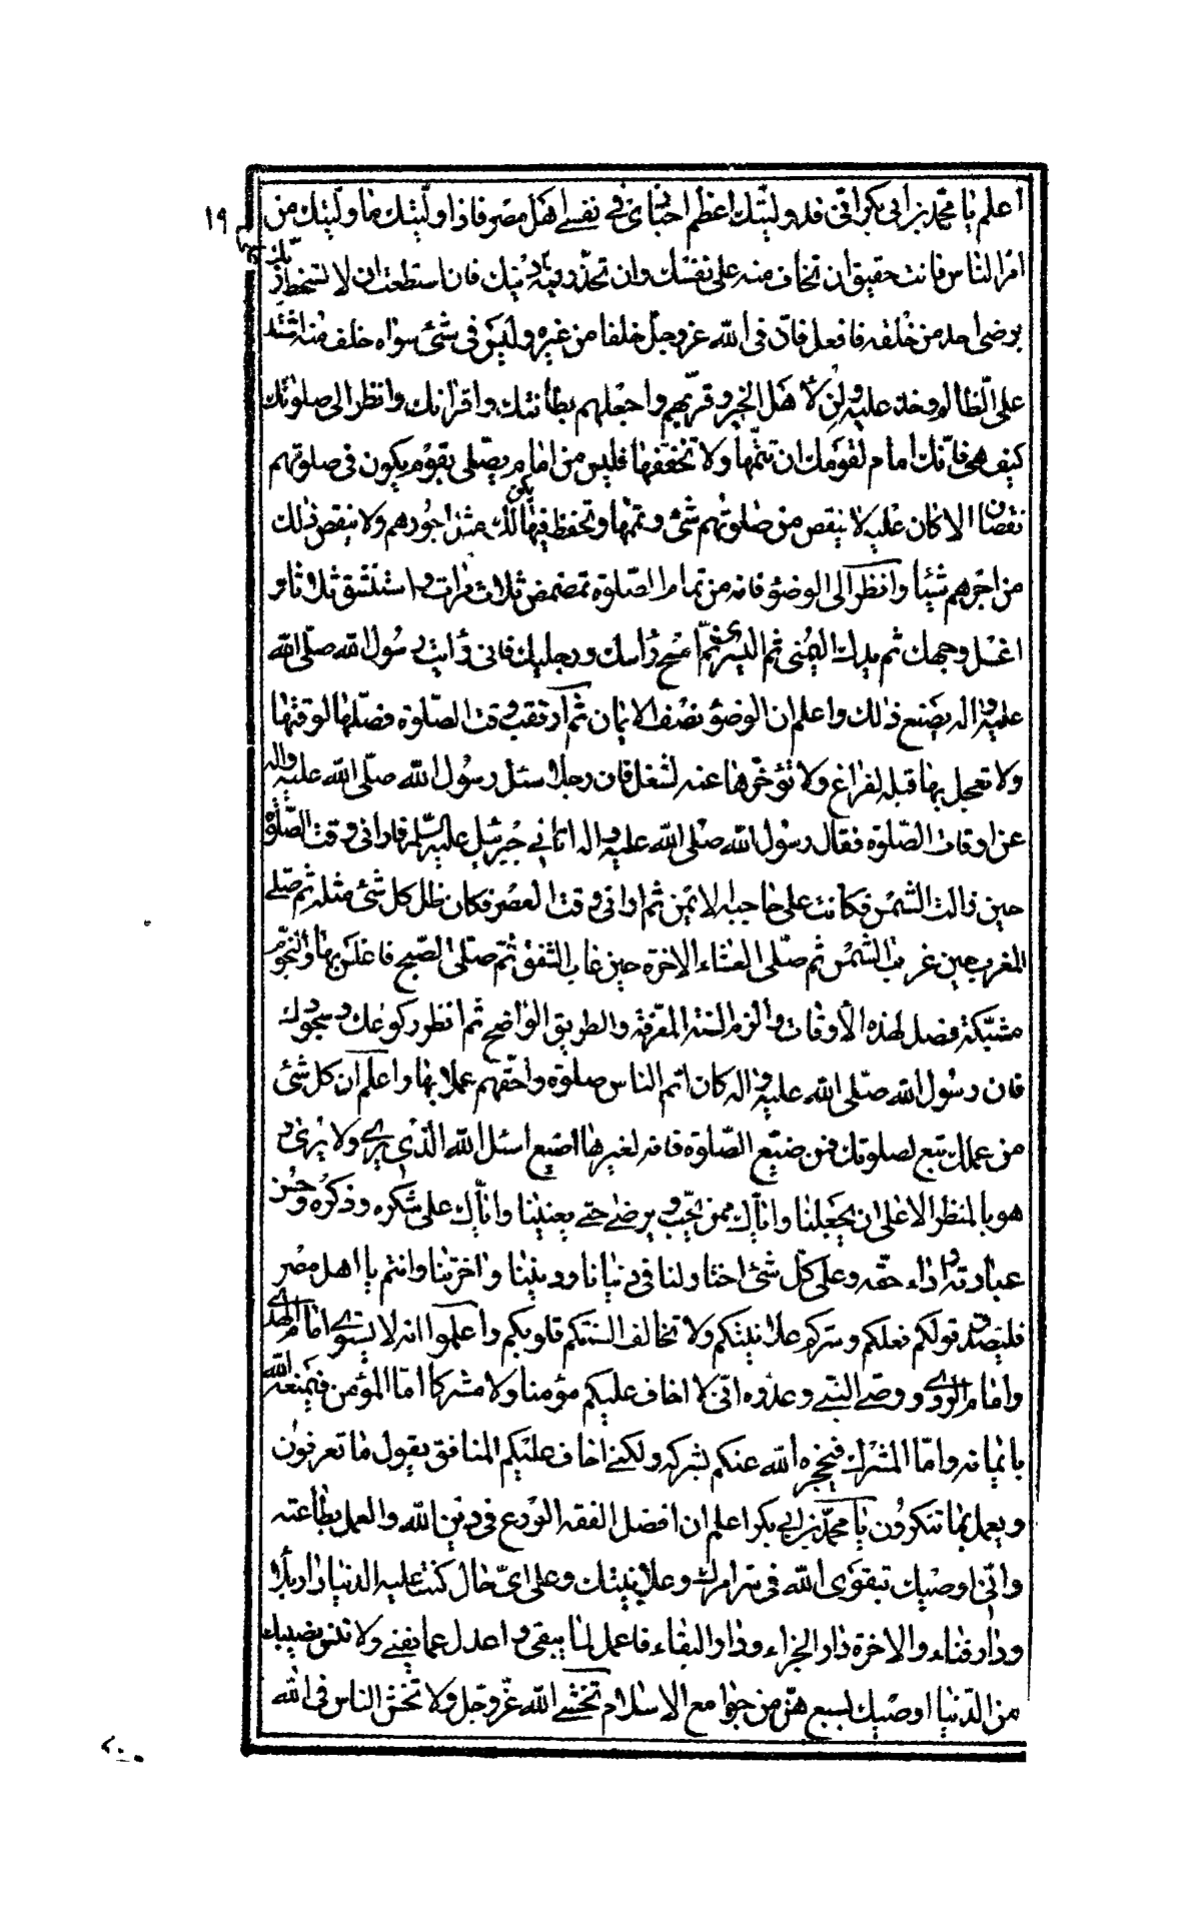 ١٩
اعلم يا محمد بن ابى بكر انى قد وليتك اعظم اجنادى فى نفسى اهل مصر فاذا وليتك ما وليتك من
امر الناس فانت حقيق ان تخاف منه على نفسك وان تحذر فيه دينك فان استطعت ان لا تسخط ربك
برضى احد من خلقه فافعل فان فى الله عز وجل خلفا من غيره وليس فى شئ سواه خلف منه اشتد
على الظالم وخذ عليه ولن لأهل الخير وقربهم واجعلهم بطانتك واقرانك وانظر الى صلوتك
كيف هى فانك امام لقومك ان تتمها ولا تخففها فليس من امام يصلى بقوم يكون فى صلوتهم
نقصان الا كان عليه لا ينقص من صلوتهم شئ وتممها وتحفظ فيها يكن لك مثل اجورهم ولا ينقص ذلك
من اجرهم شيئا وانظر الى الوضوء فانه من تمام الصلوة تمضمض ثلاث مرات واستنشق ثلاثا و
اغسل وجهك ثم يدك اليمنى ثم اليسرى ثم امسح رأسك ورجليك فانى رأيت رسول الله صلى الله
عليه واله يصنع ذلك واعلم ان الوضوء نصف الايمان ثم ارتقب وقت الصلوة فصلها لوقتها
ولا تعجل بها قبله لفراغ ولا تؤخرها عنه لشغل فان رجلا سئل رسول الله صلى الله عليه واله
عن اوقات الصلوة فقال رسول الله صلى الله عليه واله اتانى جبرئيل عليه السلم فارانى وقت الصلوة
حين زالت الشمس فكانت على حاجبه الايمن ثم ارانى وقت العصر فكان ظل كل شئ مثله ثم صلى
المغرب حين غربت الشمس ثم صلى العشاء الاخرة حين غاب الشفق ثم صلى الصبح فاغلس بها والنجوم
مشتبكة فصل لهذه الأوقات والزم السنة المعروفة والطريق الواضح ثم انظر ركوعك وسجودك
فان رسول الله صلى الله عليه واله كان اتم الناس صلوة واحقهم عملا بها واعلم ان كل شئ
من عملك تبع لصلوتك فمن ضيع الصلوة فانه لغيرها اضيع اسئل الله الذى يرى ولا يرى و
هو بالمنظر الاعلى ان يجعلنا واياك ممن يحب ويرضى حتى يعيننا واياك على شكره وذكره وحسن
عبادته واداء حقه وعلى كل شئ اختار لنا فى دنيانا وديننا واخرتنا وانتم يا اهل مصر
فليصدق قولكم فعلكم وسركم علانيتكم ولا تخالف السنتكم قلوبكم واعلموا انه لا يستوى امام الهدى
وامام الردى ووصى النبى وعدوه انى لا اخاف عليكم مؤمنا ولا مشركا اما المؤمن فيمنعه الله
بايمانه واما المشرك فيحجزه الله عنكم بشركه ولكنى اخاف عليكم المنافق يقول ما تعرفون
ويعمل بما تنكرون يا محمد بن ابى بكر اعلم ان افضل الفقه الورع فى دين الله والعمل بطاعته
وانى اوصيك بتقوى الله فى سر امرك وعلانيتك وعلى اى حال كنت عليه الدنيا دار بلاء
ودار فناء والاخرة دار الجزاء ودار البقاء فاعمل لما يبقى واعدل عما يفنى ولا تنس نصيبك
من الدنيا اوصيك بسبع هن من جوامع الاسلام تخشى الله عز وجل ولا تخش الناس فى الله